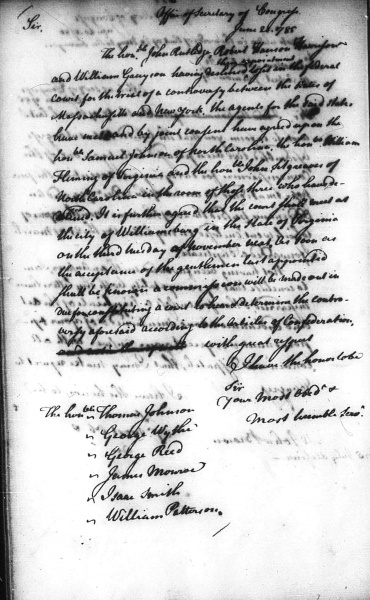 Office of Secretary of Congress,
June 21. 1785
Sir,
The honble. John Rutledge, Robert Hanson Harrison
their appointment
and William Grayson having declined in the federal
Court for the trial of a controversy between the states of
Massachusetts and New York, the agents for the said states
have met and by joint consent have agreed upon the
honble. Samuel Johnson of North Carolina, the honble. William
Fleming of Virginia and the honble. John Sitgreaves of
North Carolina in the room of those three who have de-
clined. It is further agreed that the court shall meet at
the city of Williamsburg in the state of Virginia
on the third tuesday of November next. As soon as
the acceptance of the gentlemen last appointed
shall be known a commission will be made out in
due for constituting a court to hear & determine the contro-
versy aforesaid according to the Articles of Confederation,
with great respect
I have the honor to be
Sir
Your Most Obedt. &
Most humble Serv.
The honble. Thomas Johnson
" George Wythe
" George Reed
" James Monroe
" Isaac Smith
" William Patterson.